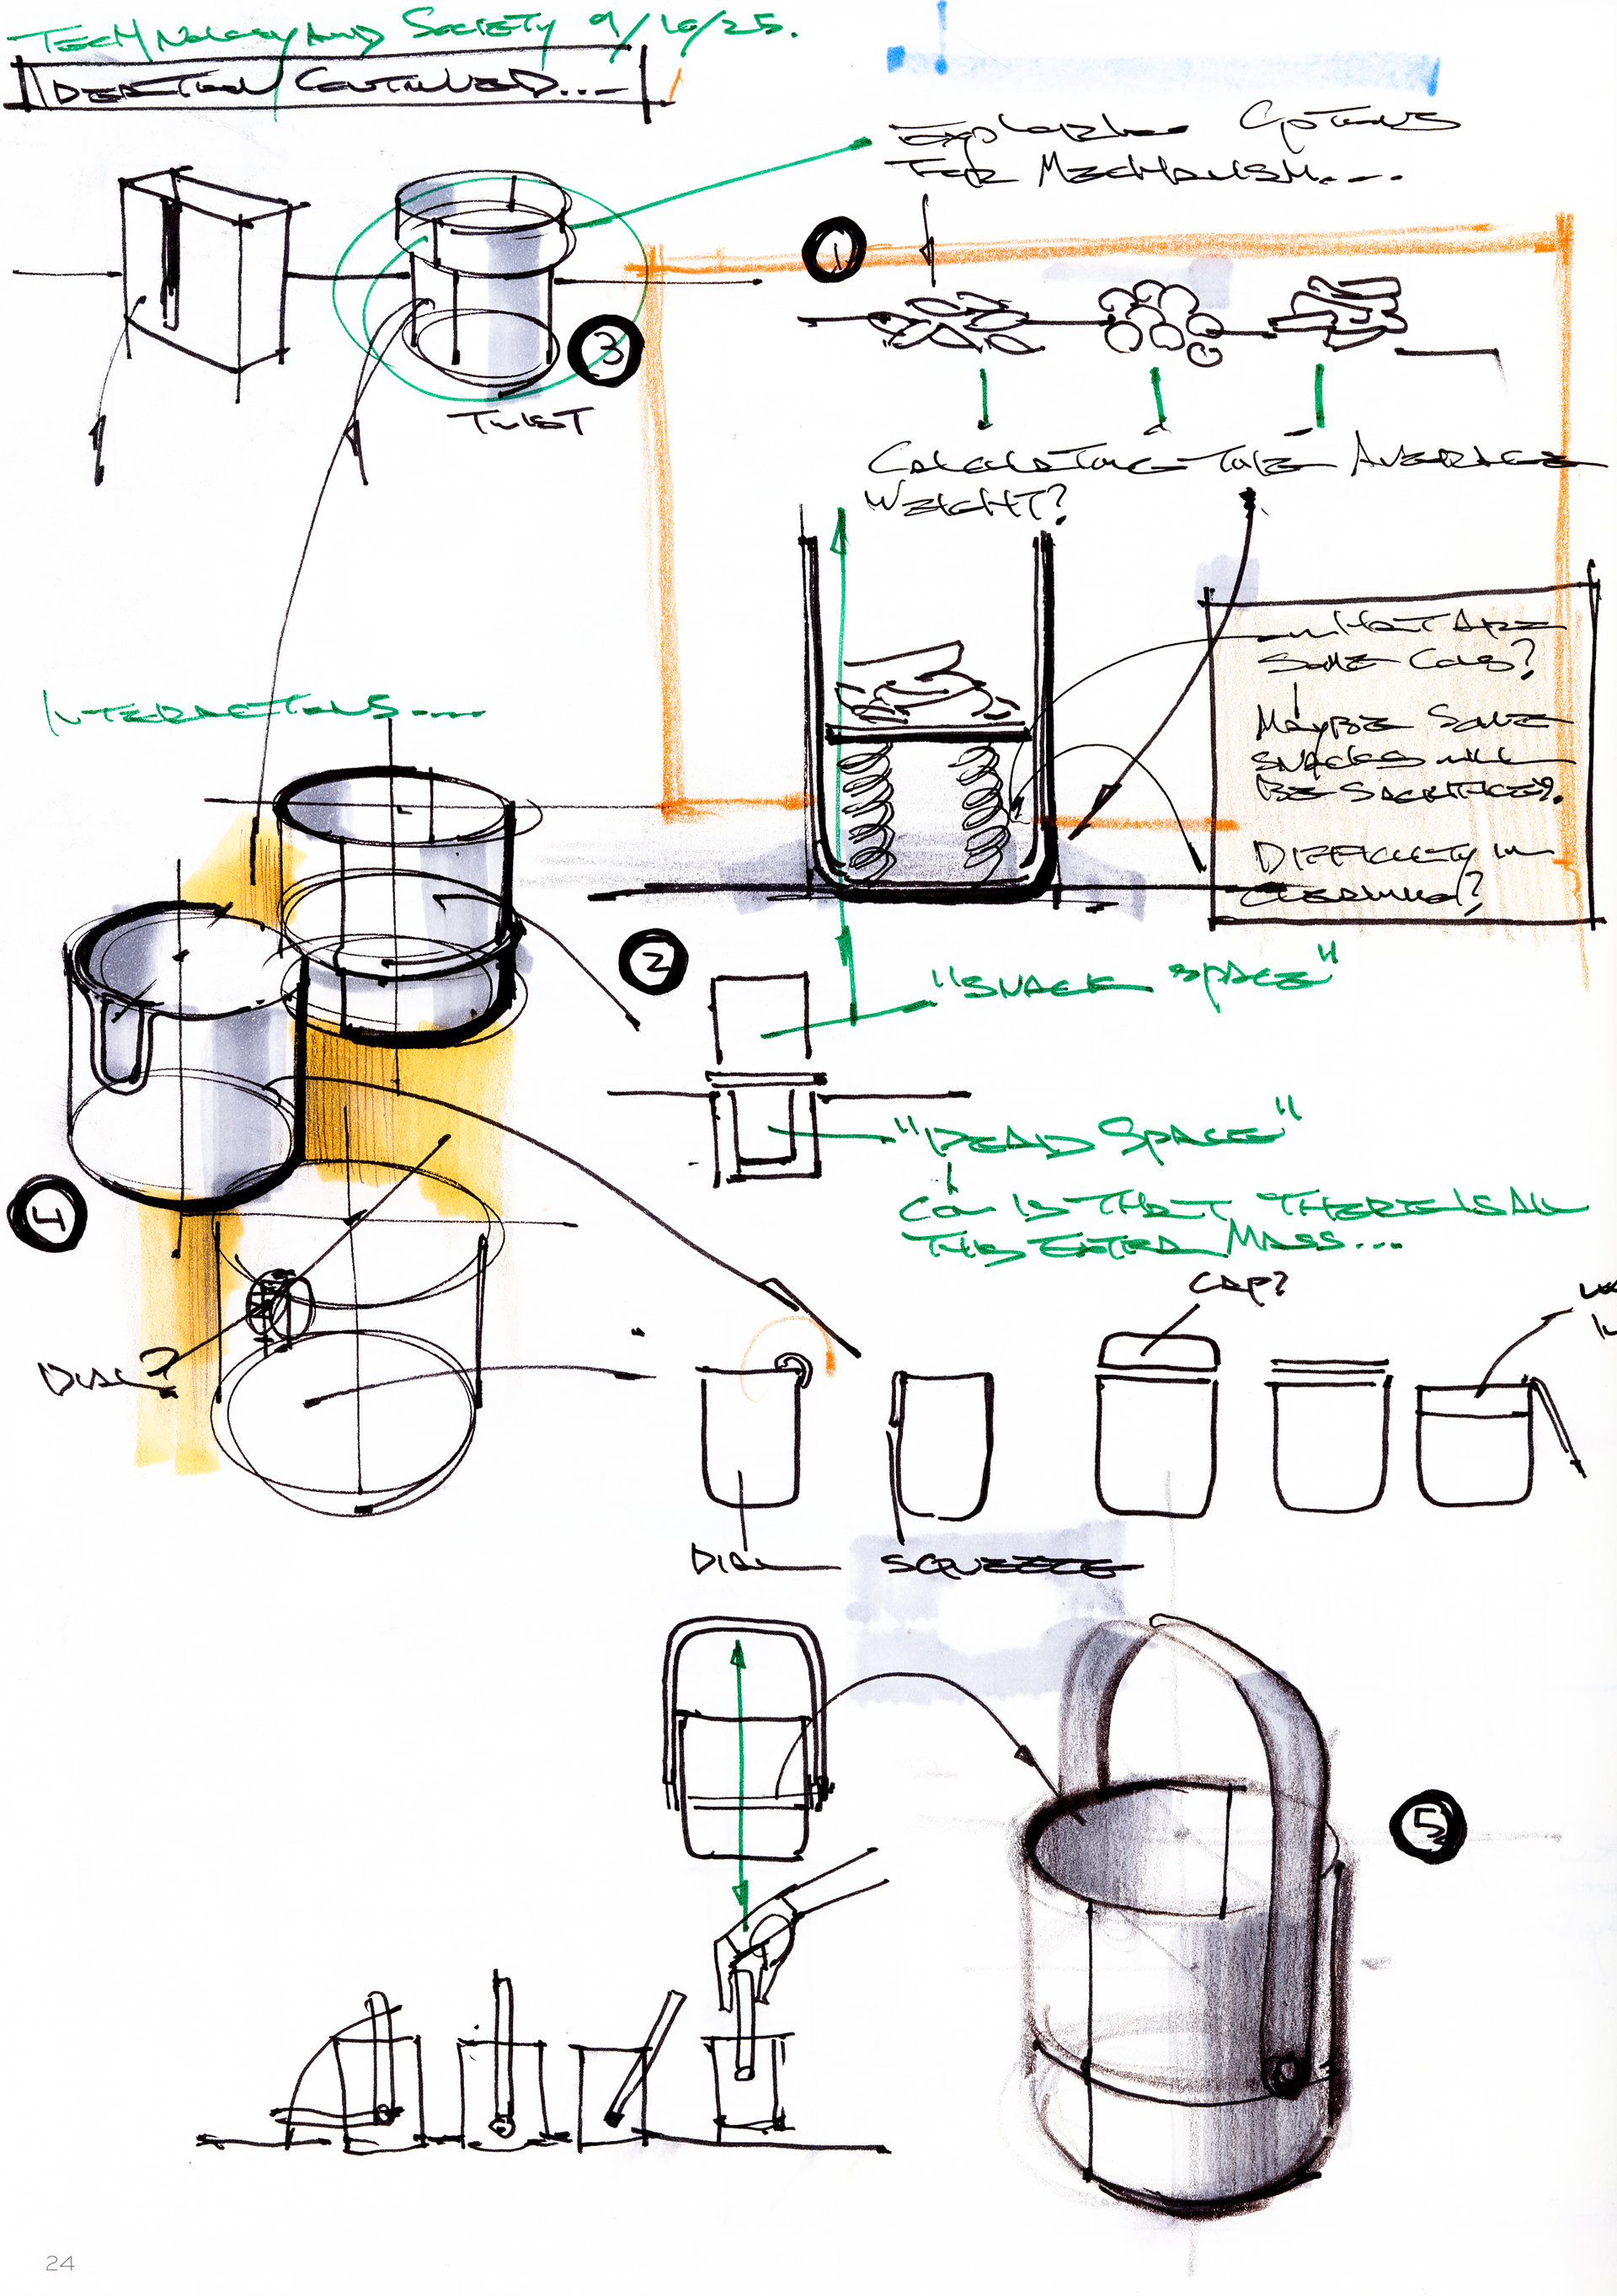 TECHNOLOGY AND SOCIETY 9/10/25.
IDEATION CONTINUED...
EXPLORING OPTIONS
FOR MECHANISM....
1
3
TWIST
CALCULATING THE AVERAGE
WEIGHT?
WHAT ARE
SOME CONS?
MAYBE SOME
SNACKS WILL
BE SACRIFICED?.
DIFFICULTY IN
CLEANING?
INTERACTIONS....
2
"SNACK SPACE"
"DEAD SPACE"
CON IS THAT THERE IS ALL
THIS EXTRA MASS...
4
CAP?
DIAL?
DIAL
SQUEEZE
5
24